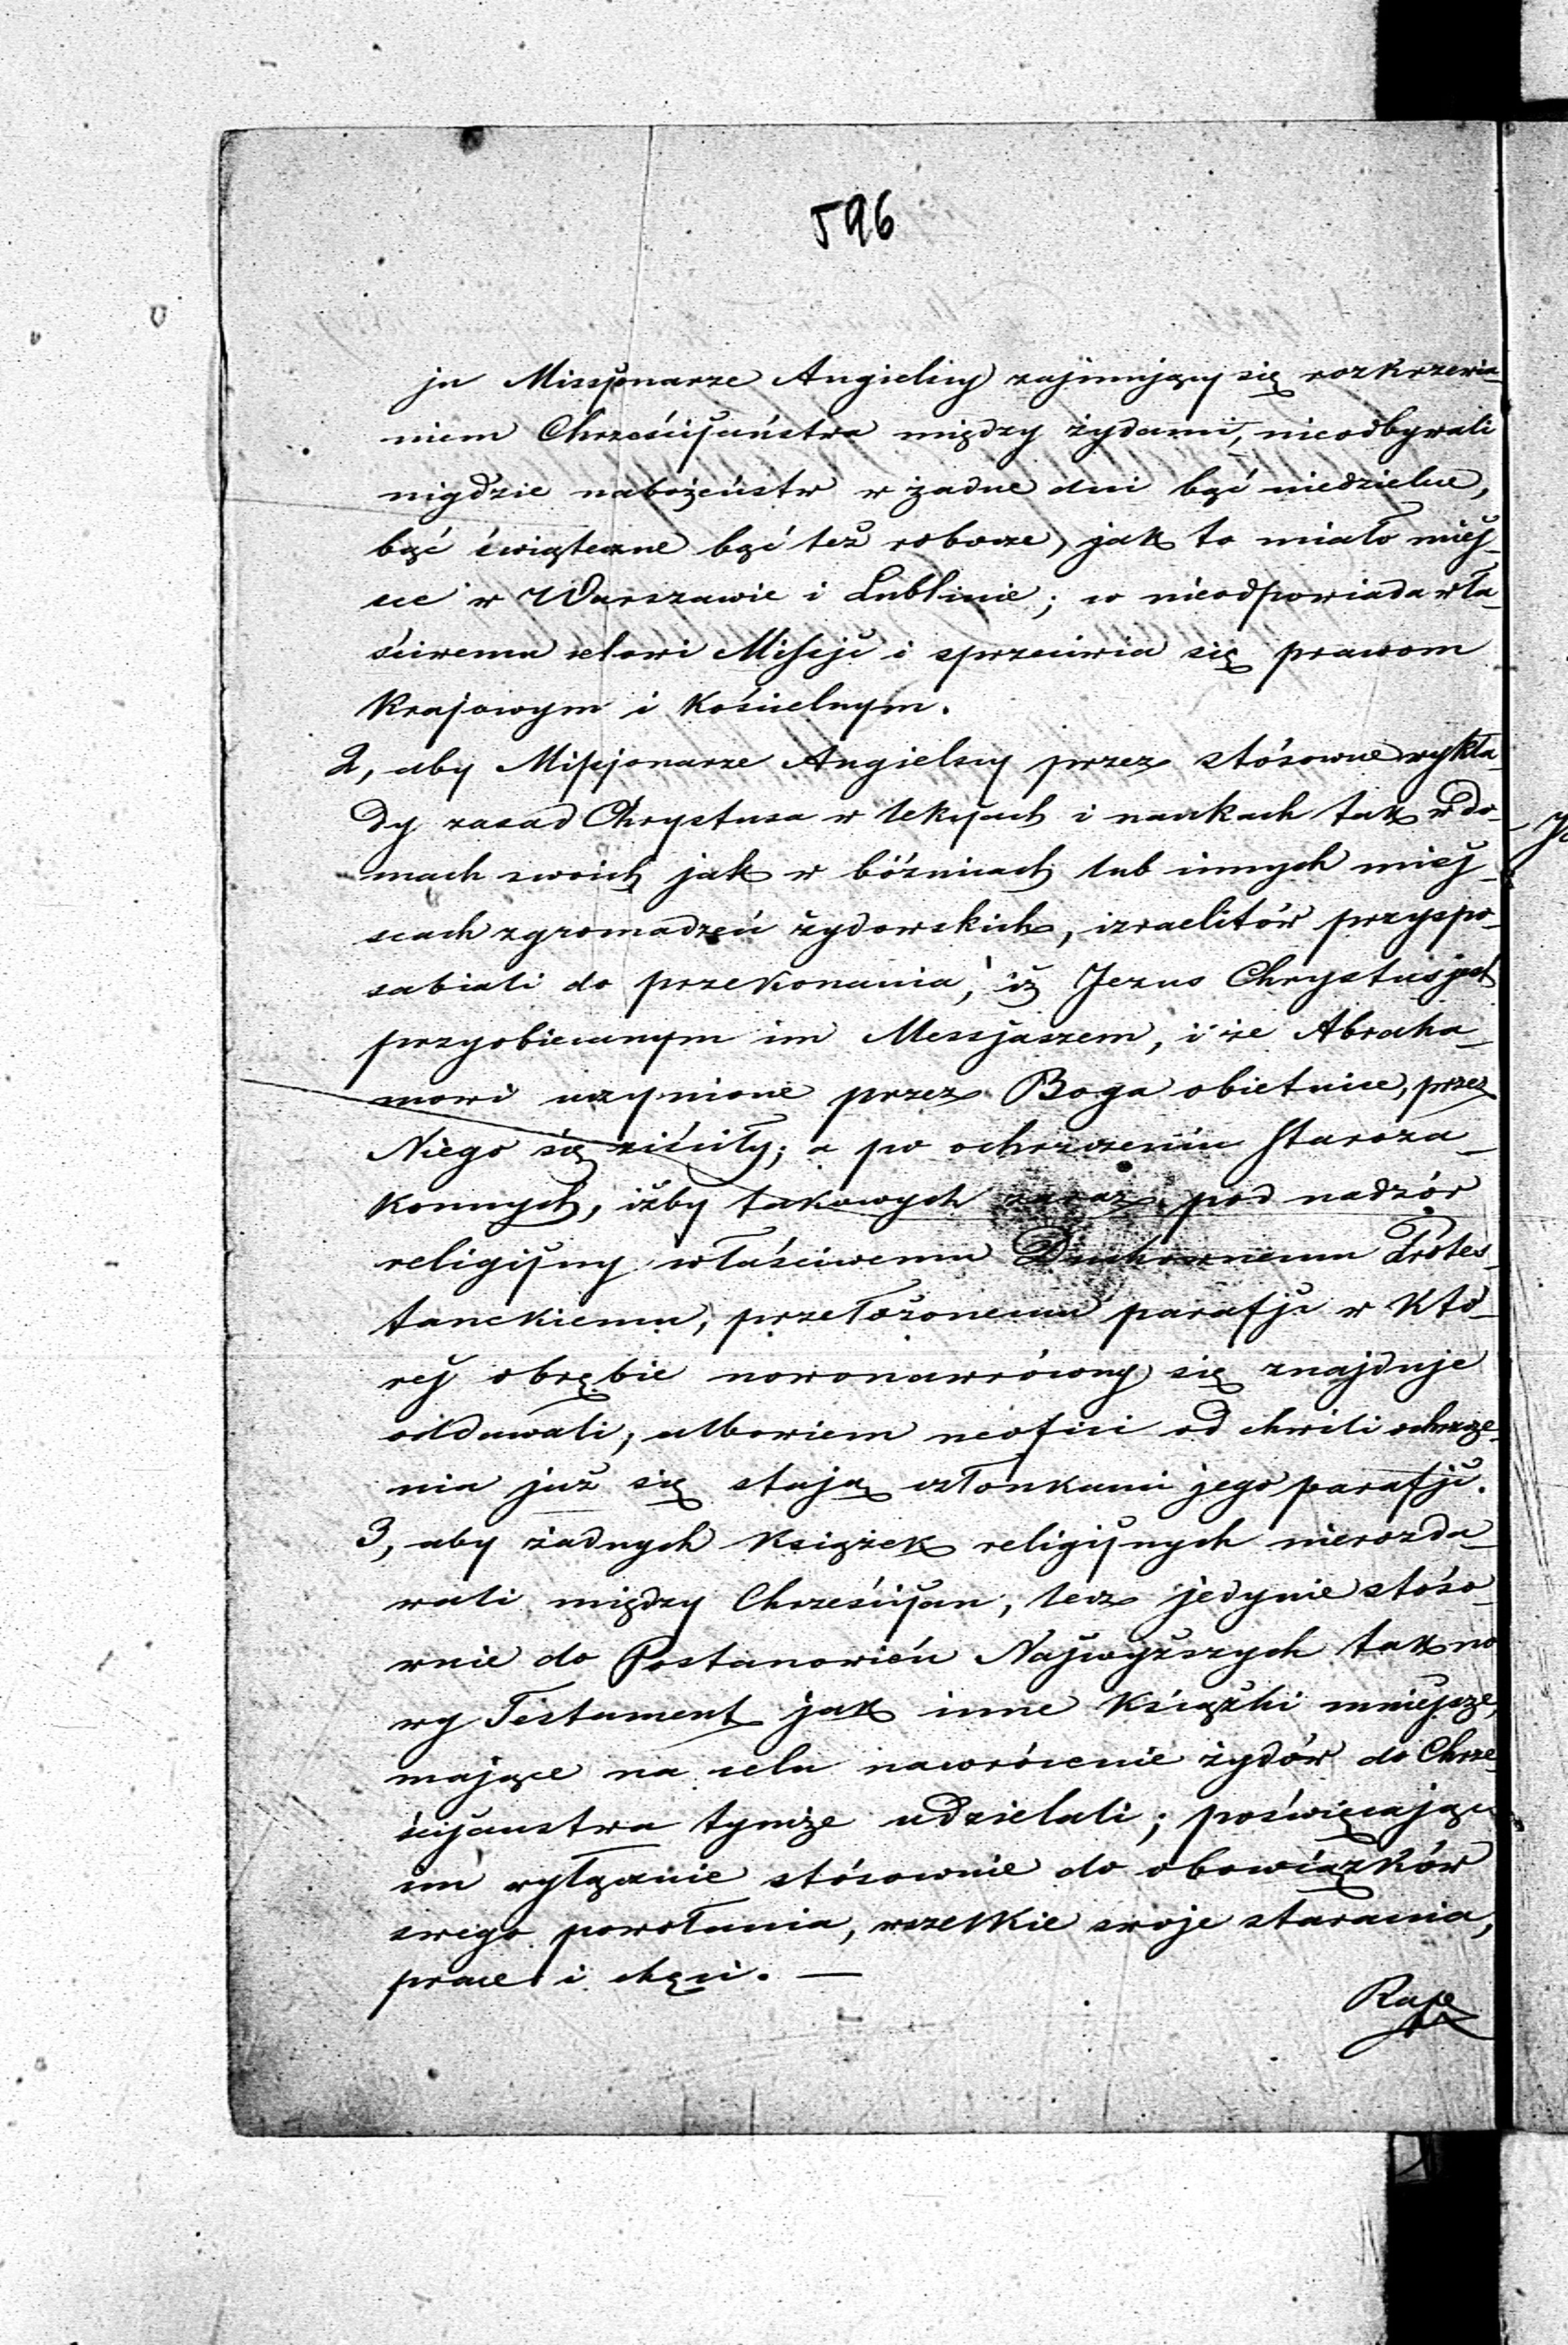 596
ju Missyonarze Angielscy zajmujący się rozkrzewia-
niem Chrześcijaństwa między żydami, nieodbywali
nigdzie nabożeństw w żadne dni bąć niedzielne,
bąć świąteczne bąć też robocze, jak to miało miej-
sce w Warszawie i Lublinie; co nieodpowiada wła-
ściwemu celowi Missyi i sprzeciwia się prawom
Krajowym i Kościelnym.
2, aby Missjonarze Angielscy przez stósowne wykła-
dy zasad Chrystusa w lekcyach i naukach tak w do-
mach swoich jak w bóżnicach lub innych miej-
scach zgromadzeń żydowskich, izraelitów przyspo-
sabiali do przekonania, iż Jezus Chrystus jest
przyobiecanym im Messjaszem, i że Abraha-
mowi uczynione przez Boga obietnice, przez
Niego się ziściły; a po ochrzczeniu Staroza-
konnych, iżby takowych zaraz pod nadzór
religijny właściwemu Duchownemu Protes-
tanckiemu, przełożonemu parafji w któ-
rej obrębie nowonawrócony się znajduje
oddawali, albowiem neofici od chwili ochrzcze-
nia już się stają członkami jego parafji.
3, aby żadnych Książek religijnych nierozda-
wali między Chrześcijan, lecz jedynie stóso-
wnie do Postanowień Najwyższych tak no
wy Testament jak inne Książki mniejsze,
mające na celu nawrócenie żydów do Chrze-
ścijaństwa tymże udzielali; poświęcając
im wyłącznie stósownie do obowiązków
swego powołania, wszelkie swoje starania,
prace i chęci. —